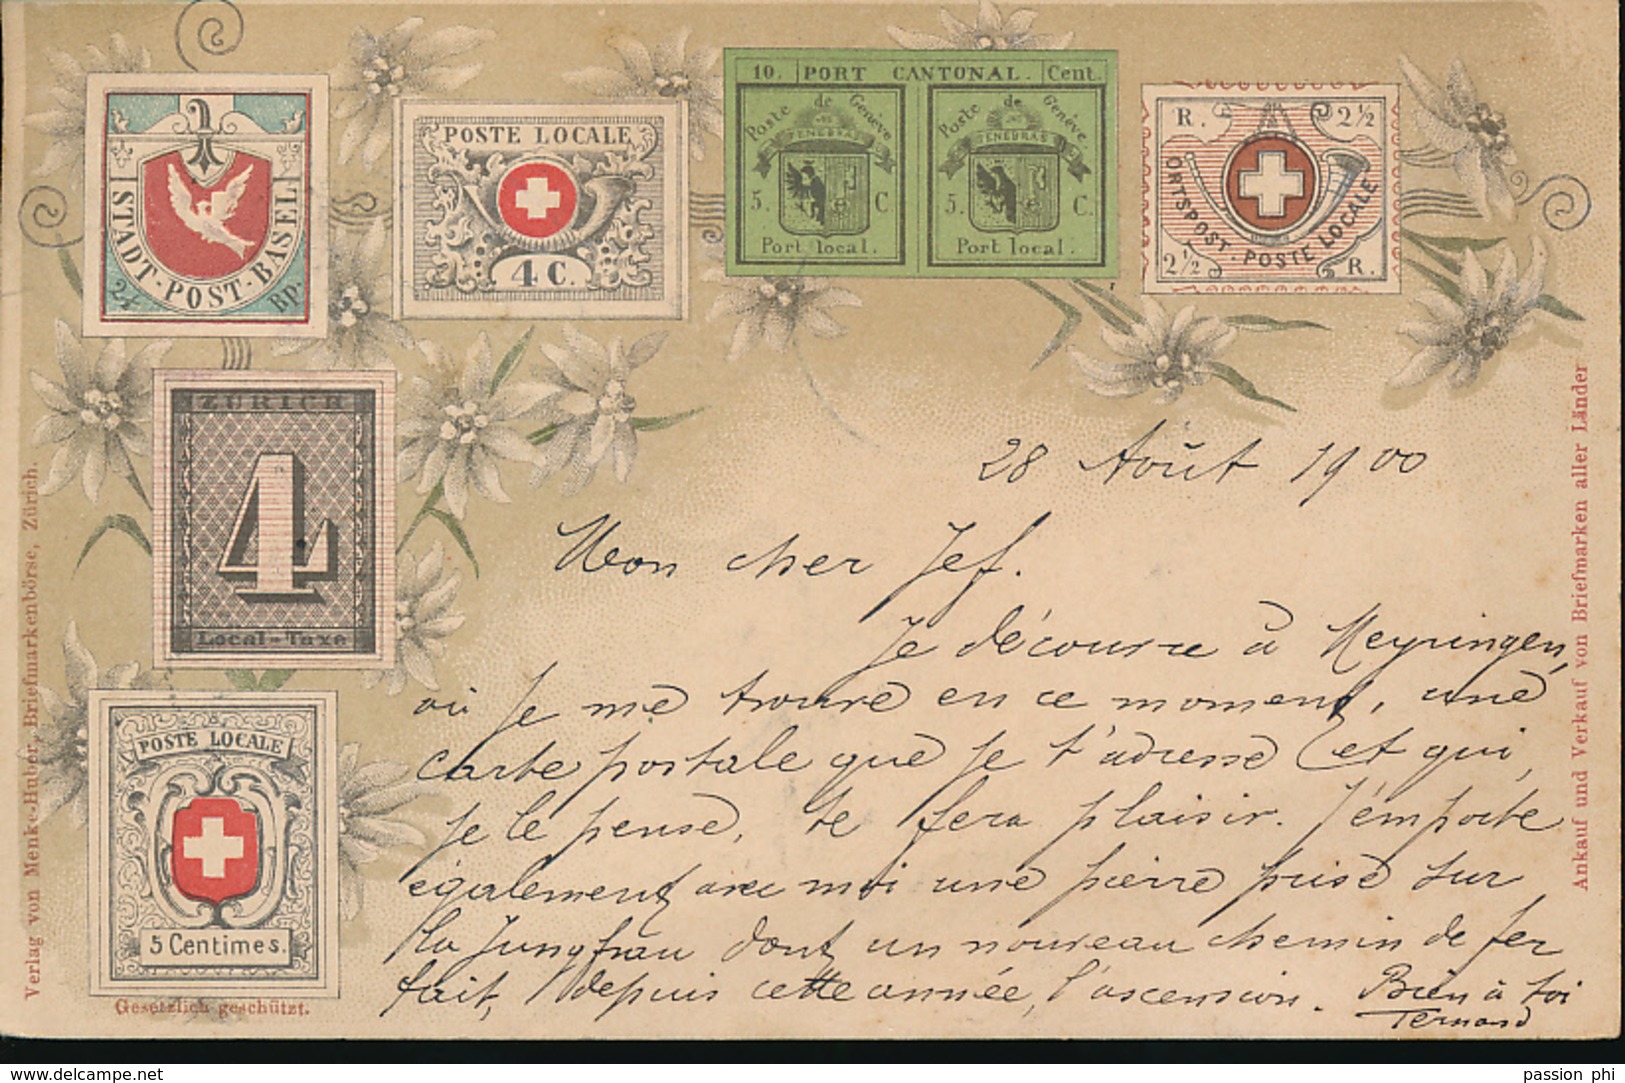 STADT-POST-BASEL
2½ Rp.
POSTE LOCALE
4 C.
10. PORT CANTONAL. Cent.
Poste de Genève
POST TENEBRAS
5. C
Port local.
Poste de Genève
TENEBRAS
5. C.
Port local.
R. 2½
ORTSPOST · POSTE LOCALE
2½ R.
ZÜRICH
4
Local-Taxe
POSTE LOCALE
5 Centimes.
Gesetzlich geschützt.
Verlag von Menke-Huber, Briefmarkenbörse, Zürich.
Ankauf und Verkauf von Briefmarken aller Länder
28 Août 1900
Mon cher Jef.
Je découvre à Meyringen,
où je me trouve en ce moment, une
carte postale que je t'adresse et qui,
je le pense, te fera plaisir. J'emporte
également avec moi une pierre prise sur
la Jungfrau dont un nouveau chemin de fer
fait, depuis cette année, l'ascension. Bien à toi
Fernand
delcampe.net
passion phi